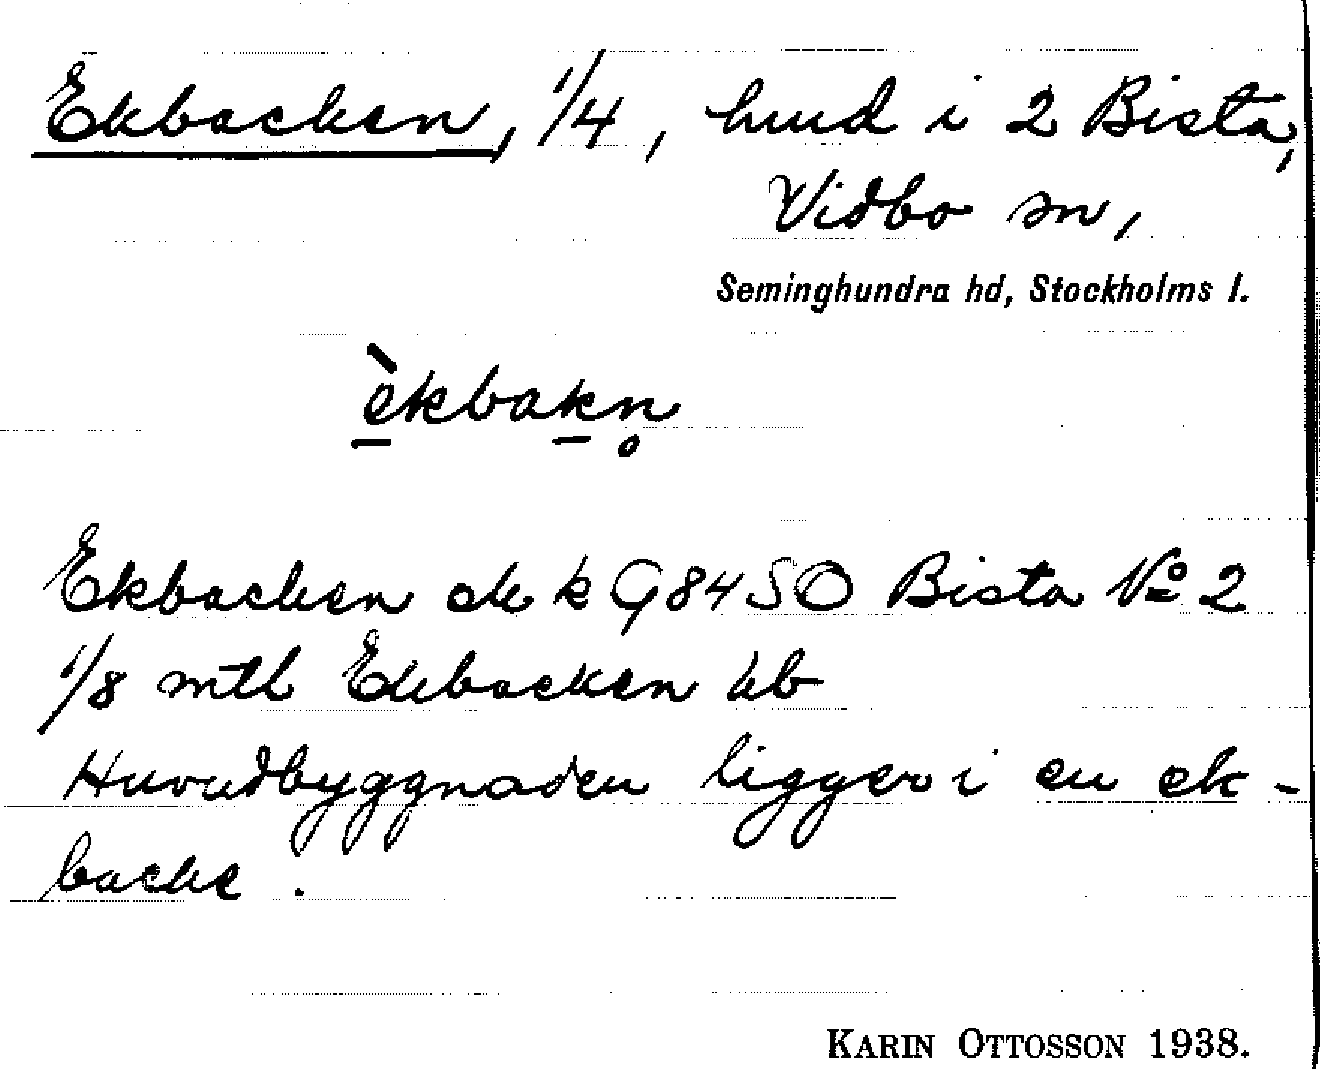 Ekbacken, 1/4, hmd i 2 Bista,
Vidbo sn,
Seminghundra hd, Stockholms l.
èkbakn̥
Ekbacken ek k G84 SO Bista No 2
1/8 mtl Ekbacken kb
Huvudbyggnaden ligger i en ek-
backe.
KARIN OTTOSSON 1938.